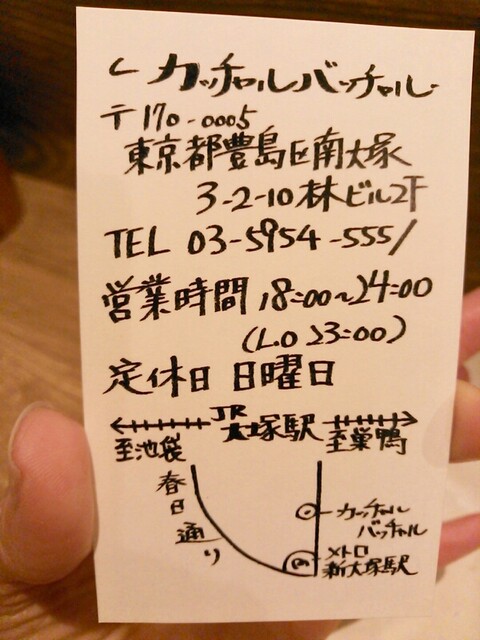 カッチャルバッチャル
〒170-0005
東京都豊島区南大塚
3-2-10 林ビル2F
TEL 03-5954-5551
営業時間 18:00~24:00
(L.O 23:00)
定休日 日曜日
JR
大塚駅
至池袋
至巣鴨
春日通り
カッチャル
バッチャル
メトロ
新大塚駅